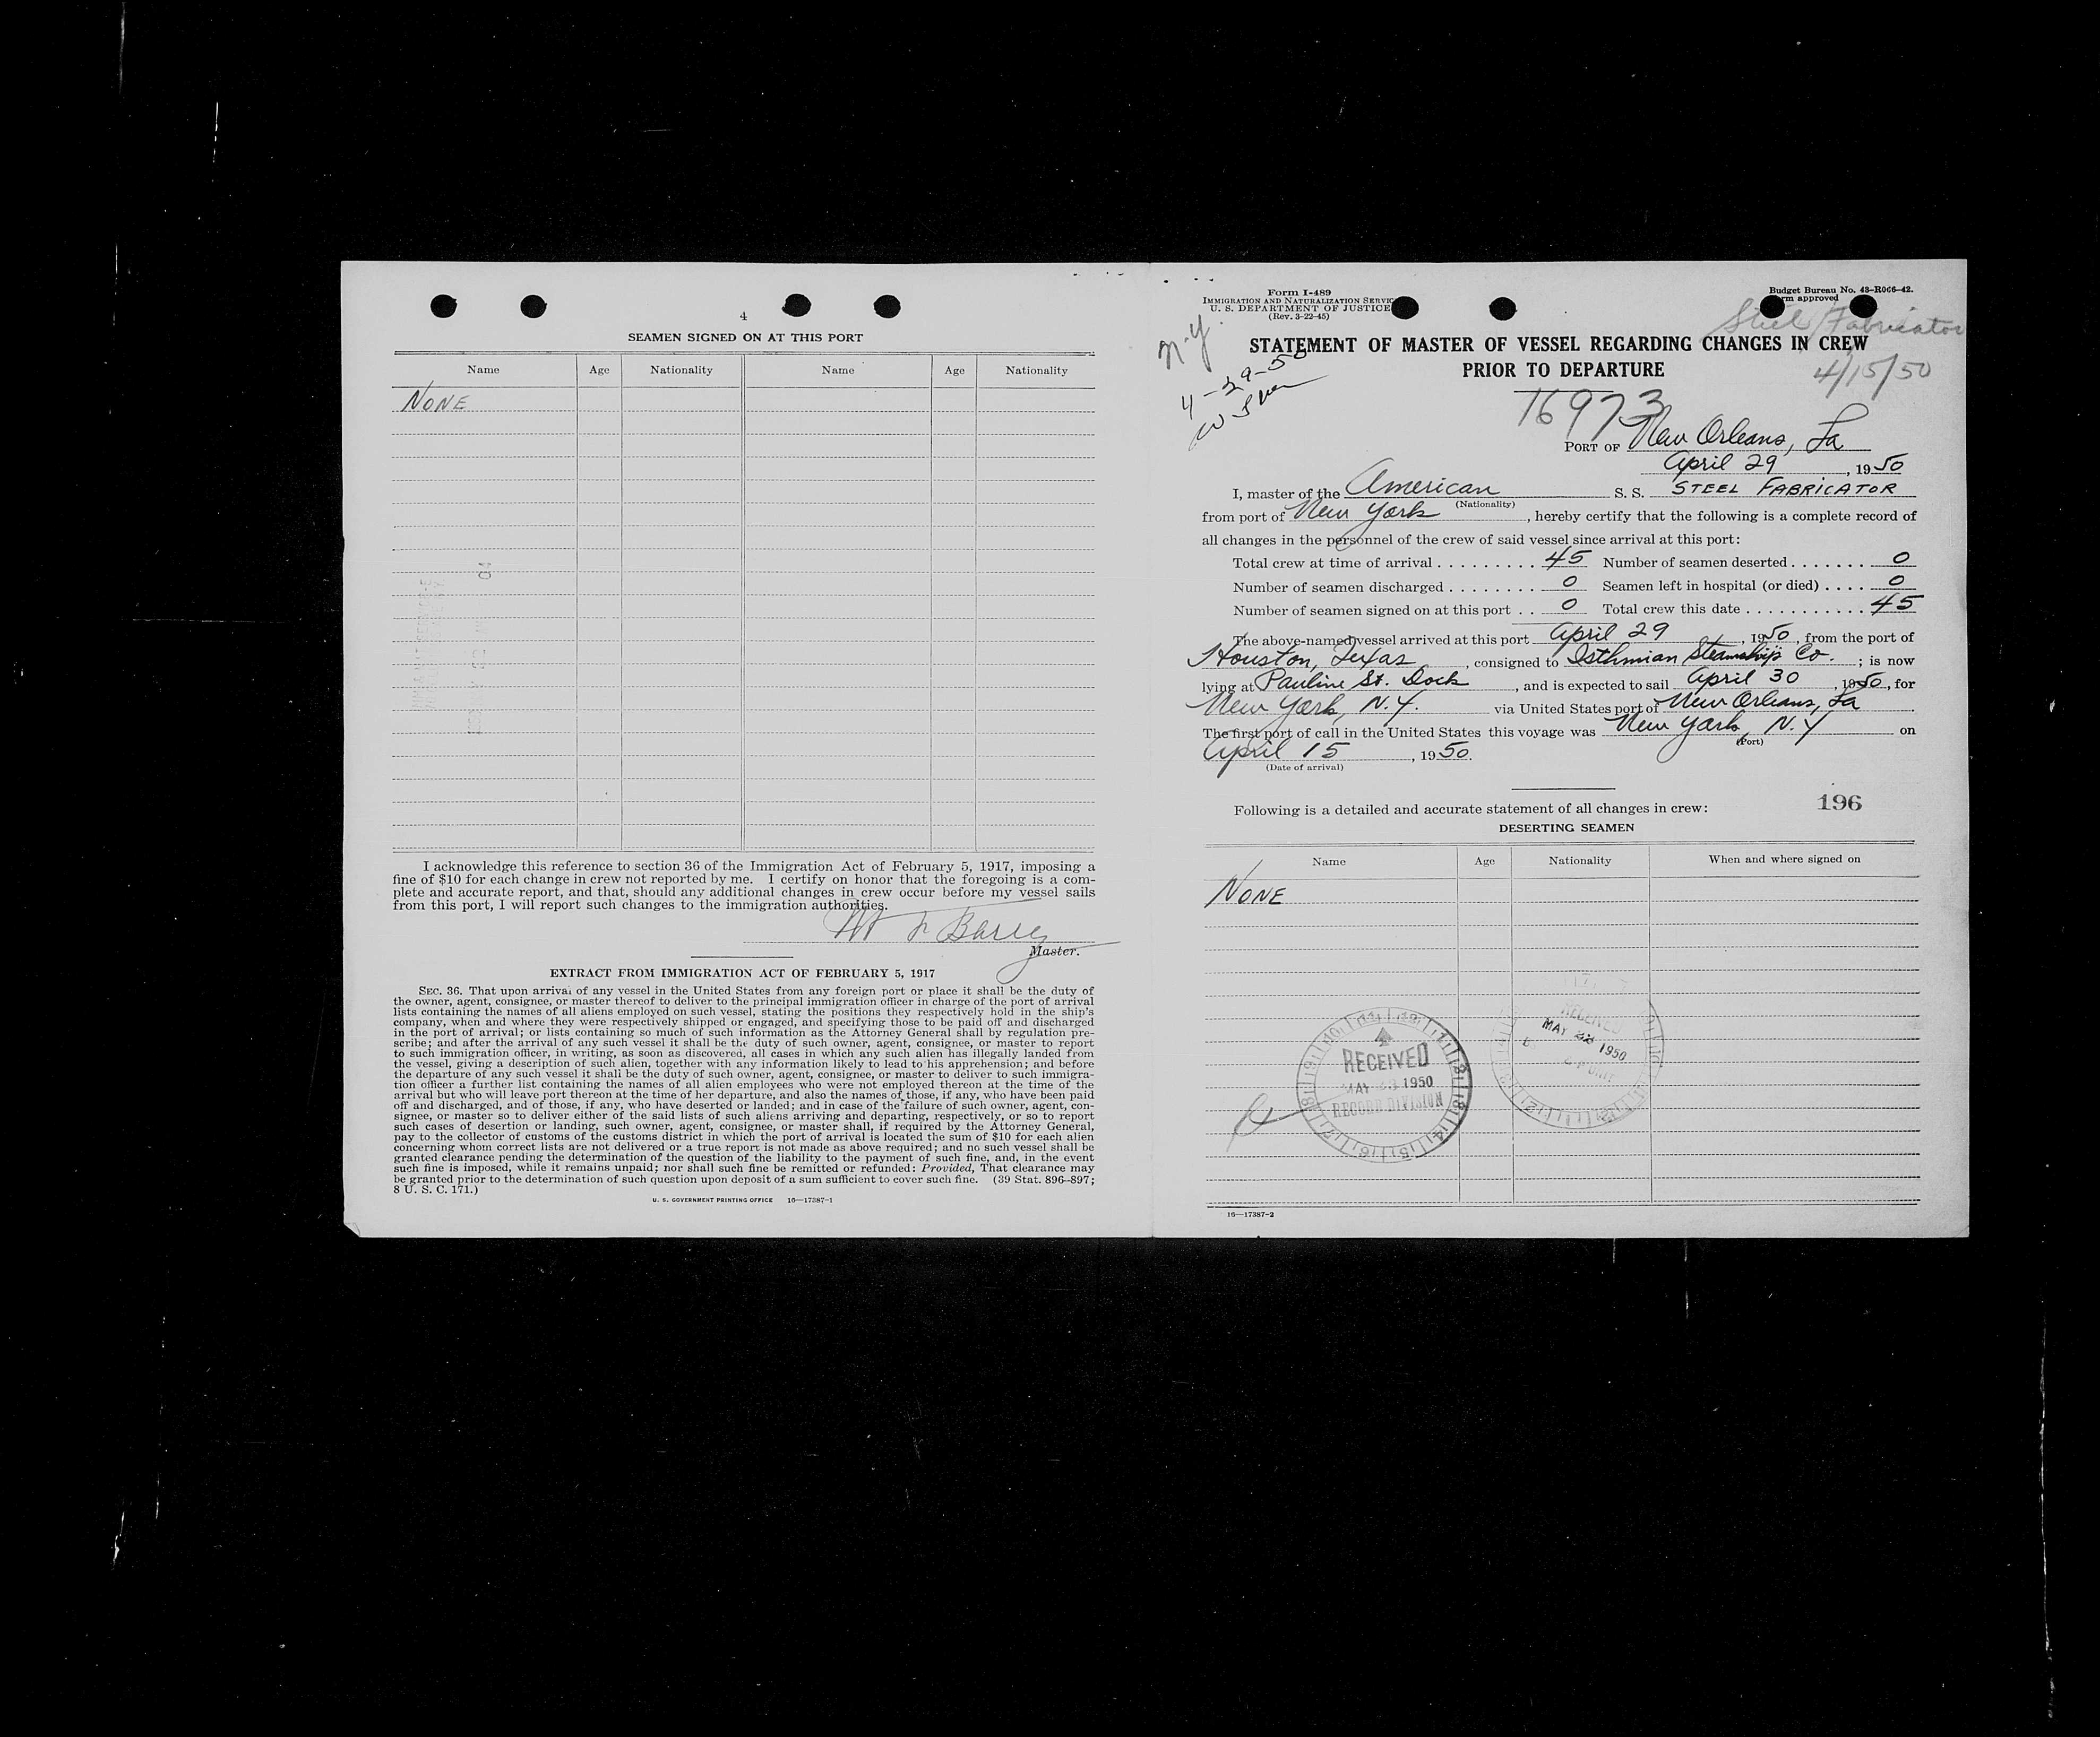 4
SEAMEN SIGNED ON AT THIS PORT
Name Age Nationality Name Age Nationality
NONE
I acknowledge this reference to section 36 of the Immigration Act of February 5, 1917, imposing a
fine of $10 for each change in crew not reported by me. I certify on honor that the foregoing is a com-
plete and accurate report, and that, should any additional changes in crew occur before my vessel sails
from this port, I will report such changes to the immigration authorities.
Master.
EXTRACT FROM IMMIGRATION ACT OF FEBRUARY 5, 1917
SEC. 36. That upon arrival of any vessel in the United States from any foreign port or place it shall be the duty of
the owner, agent, consignee, or master thereof to deliver to the principal immigration officer in charge of the port of arrival
lists containing the names of all aliens employed on such vessel, stating the positions they respectively hold in the ship's
company, when and where they were respectively shipped or engaged, and specifying those to be paid off and discharged
in the port of arrival; or lists containing so much of such information as the Attorney General shall by regulation pre-
scribe; and after the arrival of any such vessel it shall be the duty of such owner, agent, consignee, or master to report
to such immigration officer, in writing, as soon as discovered, all cases in which any such alien has illegally landed from
the vessel, giving a description of such alien, together with any information likely to lead to his apprehension; and before
the departure of any such vessel it shall be the duty of such owner, agent, consignee, or master to deliver to such immigra-
tion officer a further list containing the names of all alien employees who were not employed thereon at the time of the
arrival but who will leave port thereon at the time of her departure, and also the names of those, if any, who have been paid
off and discharged, and of those, if any, who have deserted or landed; and in case of the failure of such owner, agent, con-
signee, or master so to deliver either of the said lists of such aliens arriving and departing, respectively, or so to report
such cases of desertion or landing, such owner, agent, consignee, or master shall, if required by the Attorney General,
pay to the collector of customs of the customs district in which the port of arrival is located the sum of $10 for each alien
concerning whom correct lists are not delivered or a true report is not made as above required; and no such vessel shall be
granted clearance pending the determination of the question of the liability to the payment of such fine, and, in the event
such fine is imposed, while it remains unpaid; nor shall such fine be remitted or refunded: Provided, That clearance may
be granted prior to the determination of such question upon deposit of a sum sufficient to cover such fine. (39 Stat. 896–897;
8 U. S. C. 171.)
U. S. GOVERNMENT PRINTING OFFICE 16—17387-1
Form I-489
IMMIGRATION AND NATURALIZATION SERVIC
U. S. DEPARTMENT OF JUSTICE
(Rev. 3-22-45)
Budget Bureau No. 43-R066-42.
rm approved
Steel Fabricator
4/15/50
N.Y.
4-29-50
STATEMENT OF MASTER OF VESSEL REGARDING CHANGES IN CREW
PRIOR TO DEPARTURE
16973
PORT OF New Orleans, La
April 29, 1950
I, master of the American S. S. STEEL FABRICATOR
(Nationality)
from port of New York, hereby certify that the following is a complete record of
all changes in the personnel of the crew of said vessel since arrival at this port:
Total crew at time of arrival . . . . . . . . . 45 Number of seamen deserted . . . . . . . 0
Number of seamen discharged . . . . . . . . 0 Seamen left in hospital (or died) . . . . 0
Number of seamen signed on at this port . . 0 Total crew this date . . . . . . . . . . . 45
The above-named vessel arrived at this port April 29, 1950, from the port of
Houston, Texas, consigned to Isthmian Steamship Co.; is now
lying at Pauline St. Dock, and is expected to sail April 30, 1950, for
New York, N.Y. via United States port of New Orleans, La
The first port of call in the United States this voyage was New York, N.Y on
(Port)
April 15, 1950.
(Date of arrival)
196
Following is a detailed and accurate statement of all changes in crew:
DESERTING SEAMEN
Name Age Nationality When and where signed on
NONE
RECEIVED
MAY 1950
RECORD DIVISION
RECEIVED
MAY 1950
16—17387-2